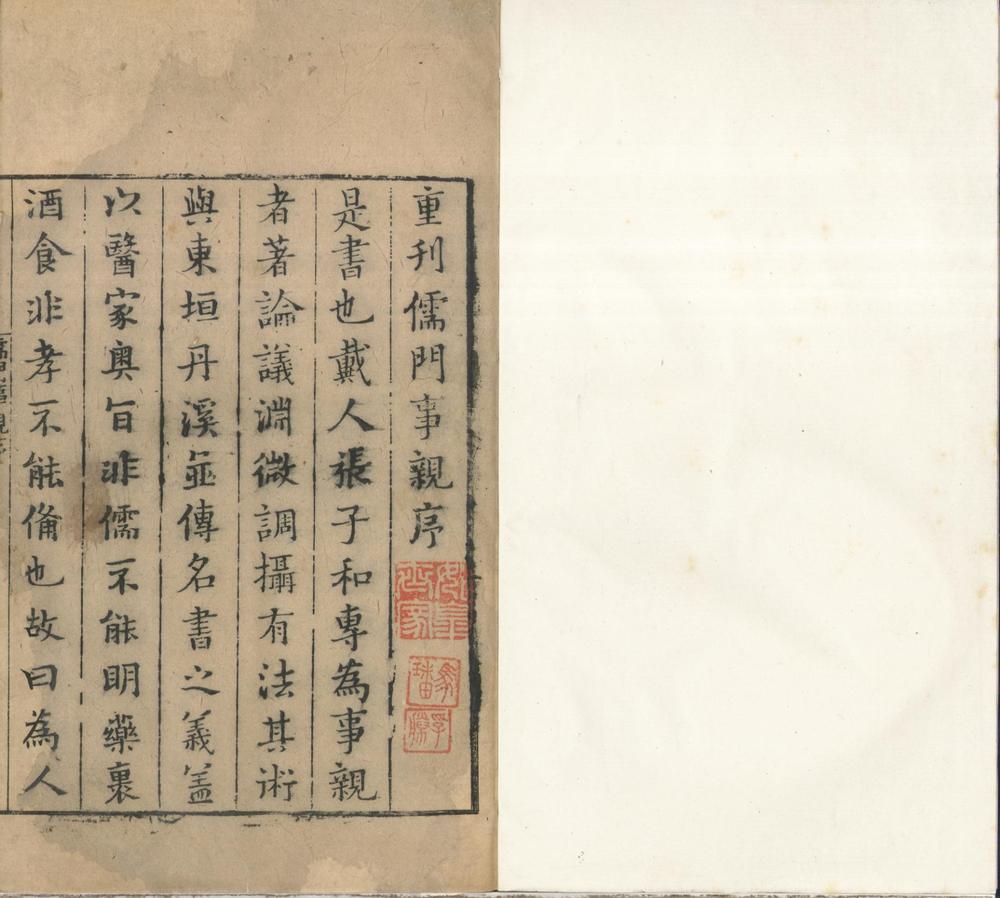 重刋儒門事親序
是書也戴人張子和專為事親
者著論議淵微調攝有法其術
與東垣丹溪並傳名書之義盖
以醫家奧旨非儒不能明藥裏
酒食非孝不能俻也故曰為人